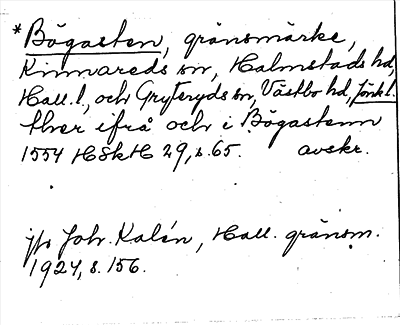 *Bögasten, gränsmärke,
Kinnareds sn, Halmstads hd,
Hall. l, och Gryteryds sn, Västbo hd, Jönk l.
ther ifrå och i Bögastenn
1554 HSkH 29, s. 65. avskr.
jfr Joh. Kalén, Hall. gränsm.
1924, s. 156.